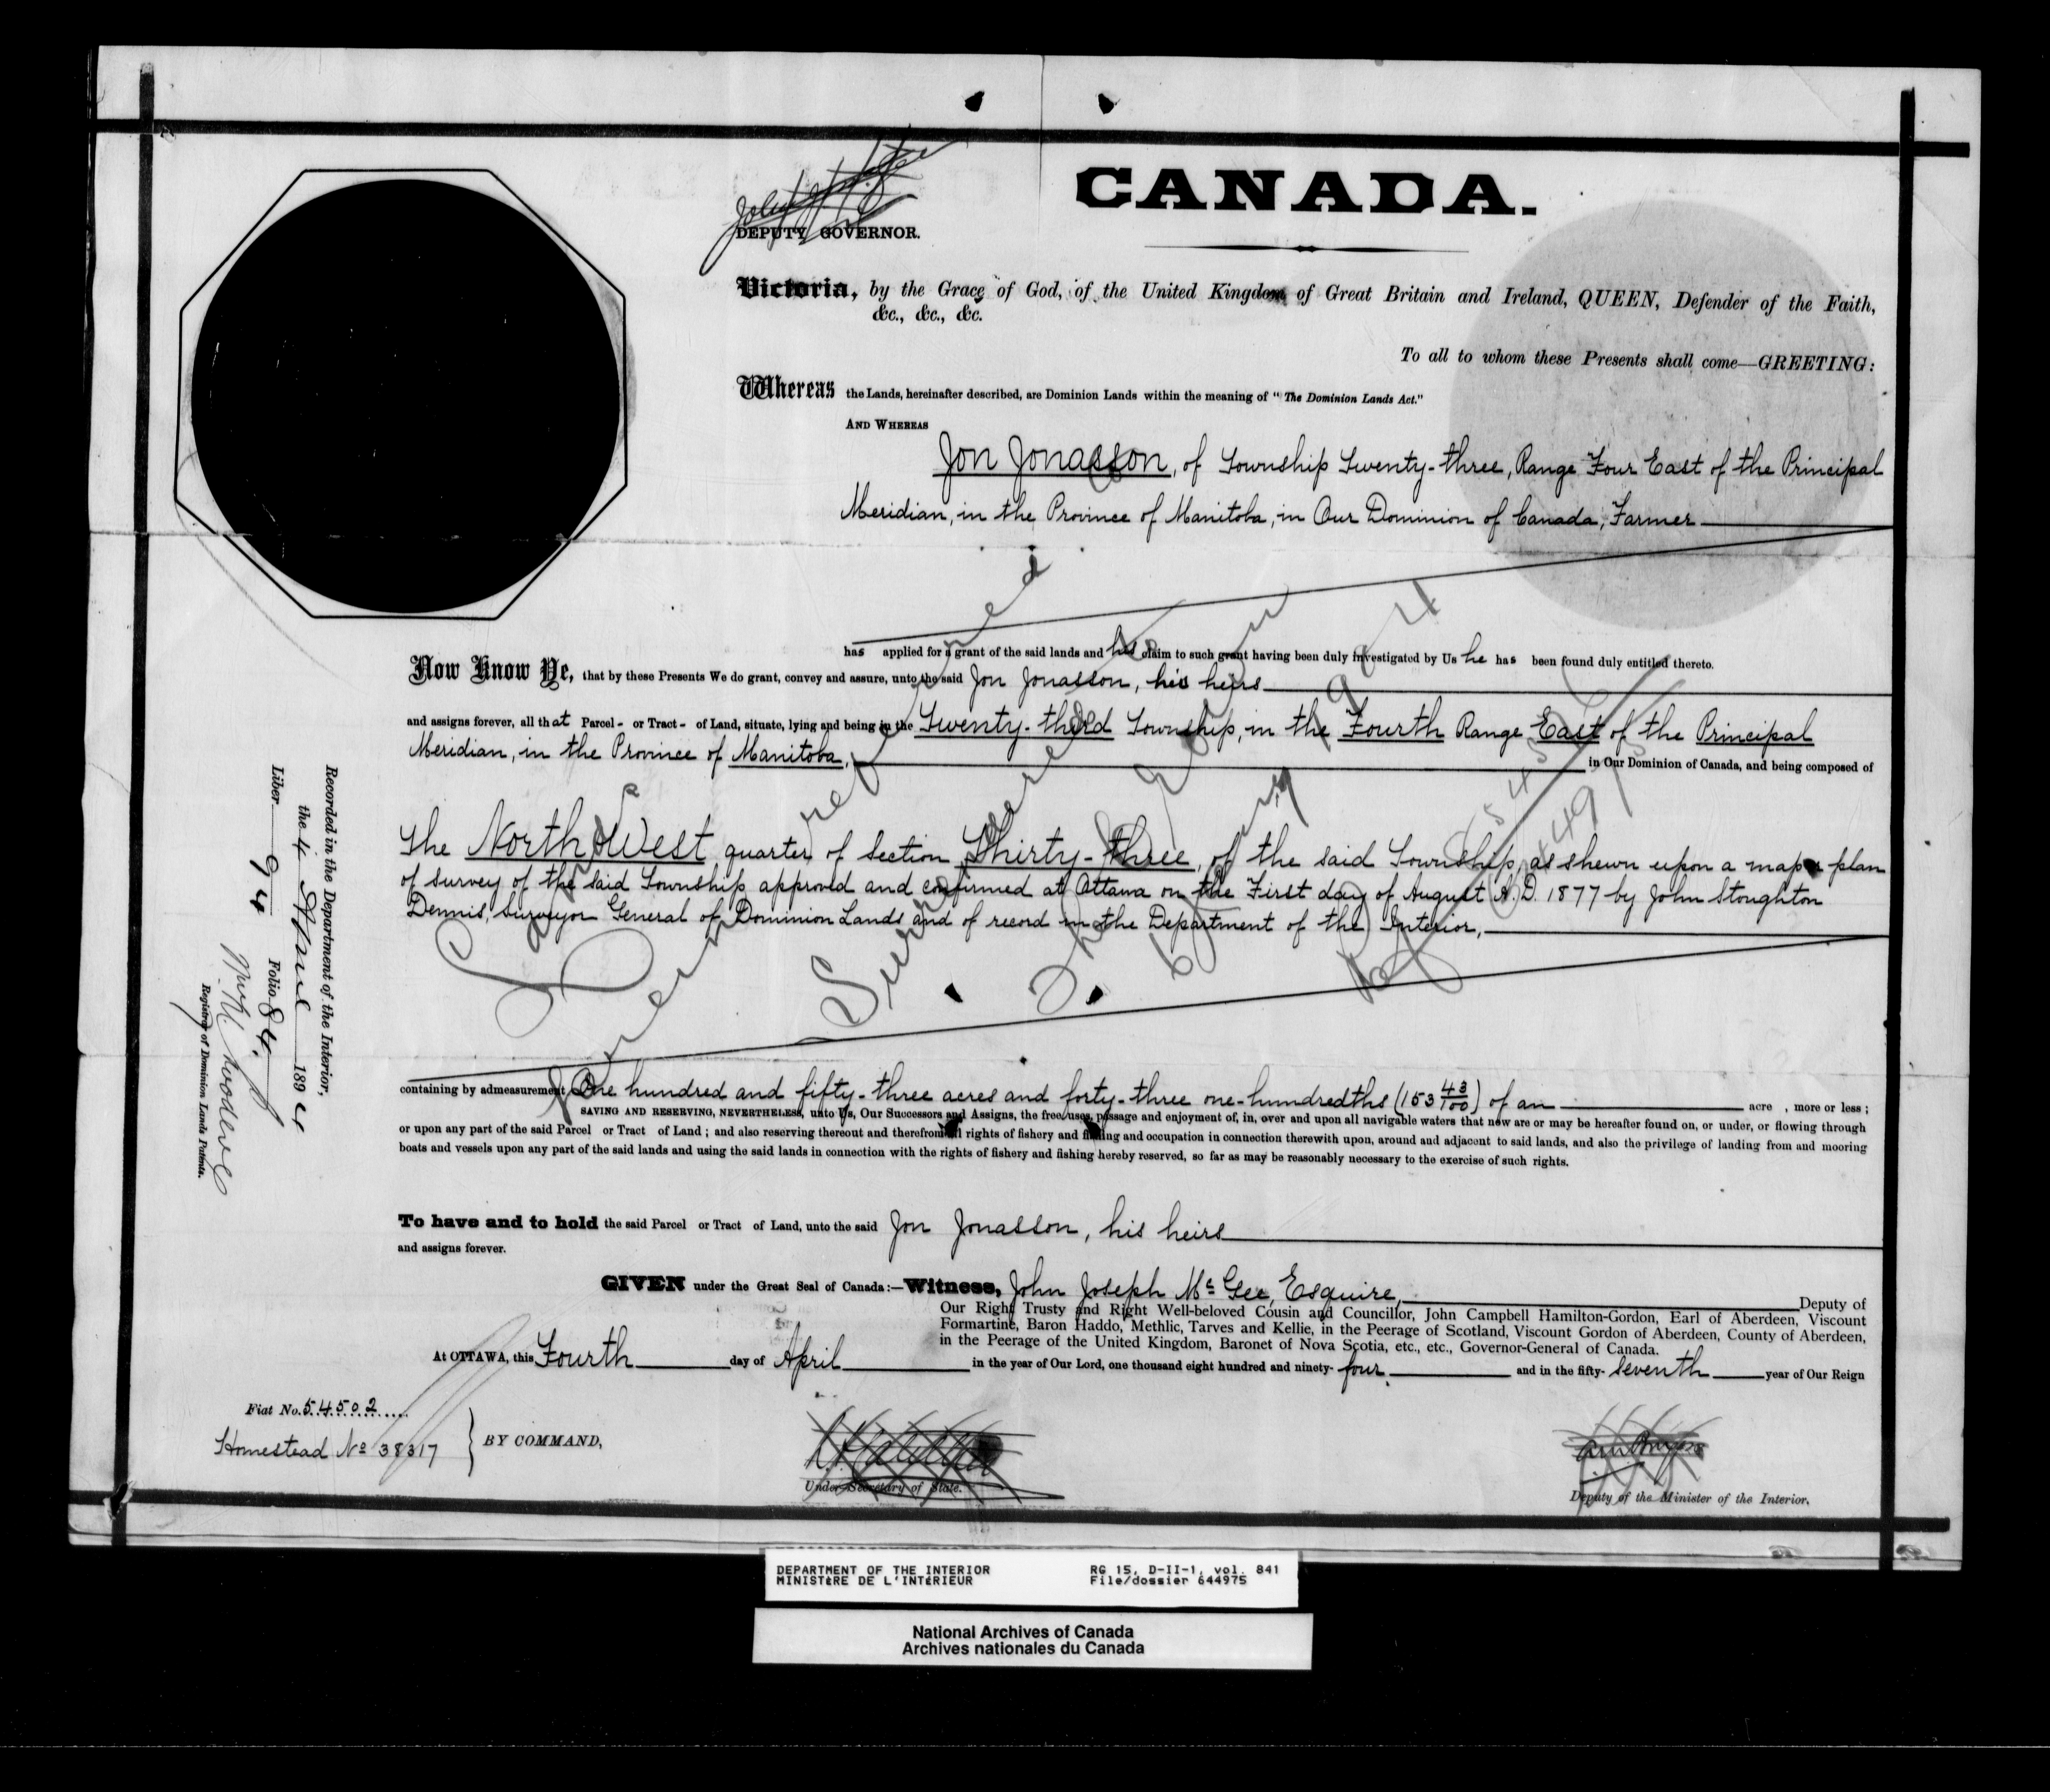 CANADA.
DEPUTY GOVERNOR.
Victoria, by the Grace of God, of the United Kingdom of Great Britain and Ireland, QUEEN, Defender of the Faith,
&c., &c., &c.
To all to whom these Presents shall come—GREETING:
Whereas the Lands, hereinafter described, are Dominion Lands within the meaning of "The Dominion Lands Act."
AND WHEREAS
Jon Jonasson, of Township Twenty-three, Range Four East of the Principal
Meridian, in the Province of Manitoba, in Our Dominion of Canada, Farmer
has applied for a grant of the said lands and his claim to such grant having been duly investigated by Us he has been found duly entitled thereto.
Now Know Ye, that by these Presents We do grant, convey and assure, unto the said Jon Jonasson, his heirs
and assigns forever, all that Parcel - or Tract - of Land, situate, lying and being in the Twenty-third Township, in the Fourth Range East of the Principal
Meridian, in the Province of Manitoba, in Our Dominion of Canada, and being composed of
The North West quarter of Section Thirty-three, of the said Township, as shewn upon a map or plan
of survey of the said Township approved and confirmed at Ottawa on the First day of August A.D. 1877 by John Stoughton
Dennis, Surveyor General of Dominion Lands and of record in the Department of the Interior,
Land
herein referred
Surrendered
The
containing by admeasurement One hundred and fifty-three acres and forty-three one-hundredths (153 43/100) of an acre , more or less ;
SAVING AND RESERVING, NEVERTHELESS, unto Us, Our Successors and Assigns, the free uses, passage and enjoyment of, in, over and upon all navigable waters that now are or may be hereafter found on, or under, or flowing through
or upon any part of the said Parcel or Tract of Land ; and also reserving thereout and therefrom all rights of fishery and fishing and occupation in connection therewith upon, around and adjacent to said lands, and also the privilege of landing from and mooring
boats and vessels upon any part of the said lands and using the said lands in connection with the rights of fishery and fishing hereby reserved, so far as may be reasonably necessary to the exercise of such rights.
To have and to hold the said Parcel or Tract of Land, unto the said Jon Jonasson, his heirs
and assigns forever.
GIVEN under the Great Seal of Canada:—Witness, John Joseph McGee, Esquire, Deputy of
Our Right Trusty and Right Well-beloved Cousin and Councillor, John Campbell Hamilton-Gordon, Earl of Aberdeen, Viscount
Formartine, Baron Haddo, Methlic, Tarves and Kellie, in the Peerage of Scotland, Viscount Gordon of Aberdeen, County of Aberdeen,
in the Peerage of the United Kingdom, Baronet of Nova Scotia, etc., etc., Governor-General of Canada.
At OTTAWA, this Fourth day of April in the year of Our Lord, one thousand eight hundred and ninety-four and in the fifty-seventh year of Our Reign
Fiat No. 54502
Homestead No 38317
BY COMMAND,
Under-Secretary of State.
Deputy of the Minister of the Interior.
Recorded in the Department of the Interior,
the 4 April 1894
Liber 94 Folio 84.
Registrar of Dominion Lands Patents.
DEPARTMENT OF THE INTERIOR RG 15, D-II-1, vol. 841
MINISTÈRE DE L'INTÉRIEUR File/dossier 644975
National Archives of Canada
Archives nationales du Canada